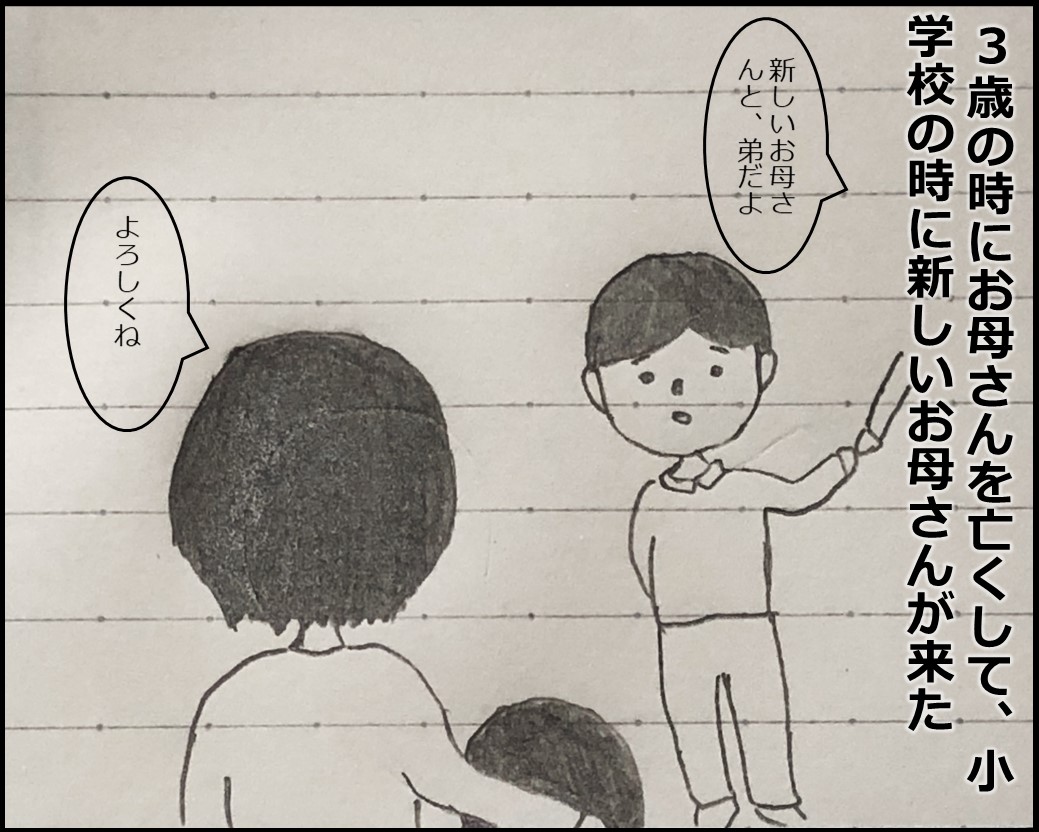 ３歳の時にお母さんを亡くして、小
学校の時に新しいお母さんが来た
新しいお母さ
んと、弟だよ
よろしくね